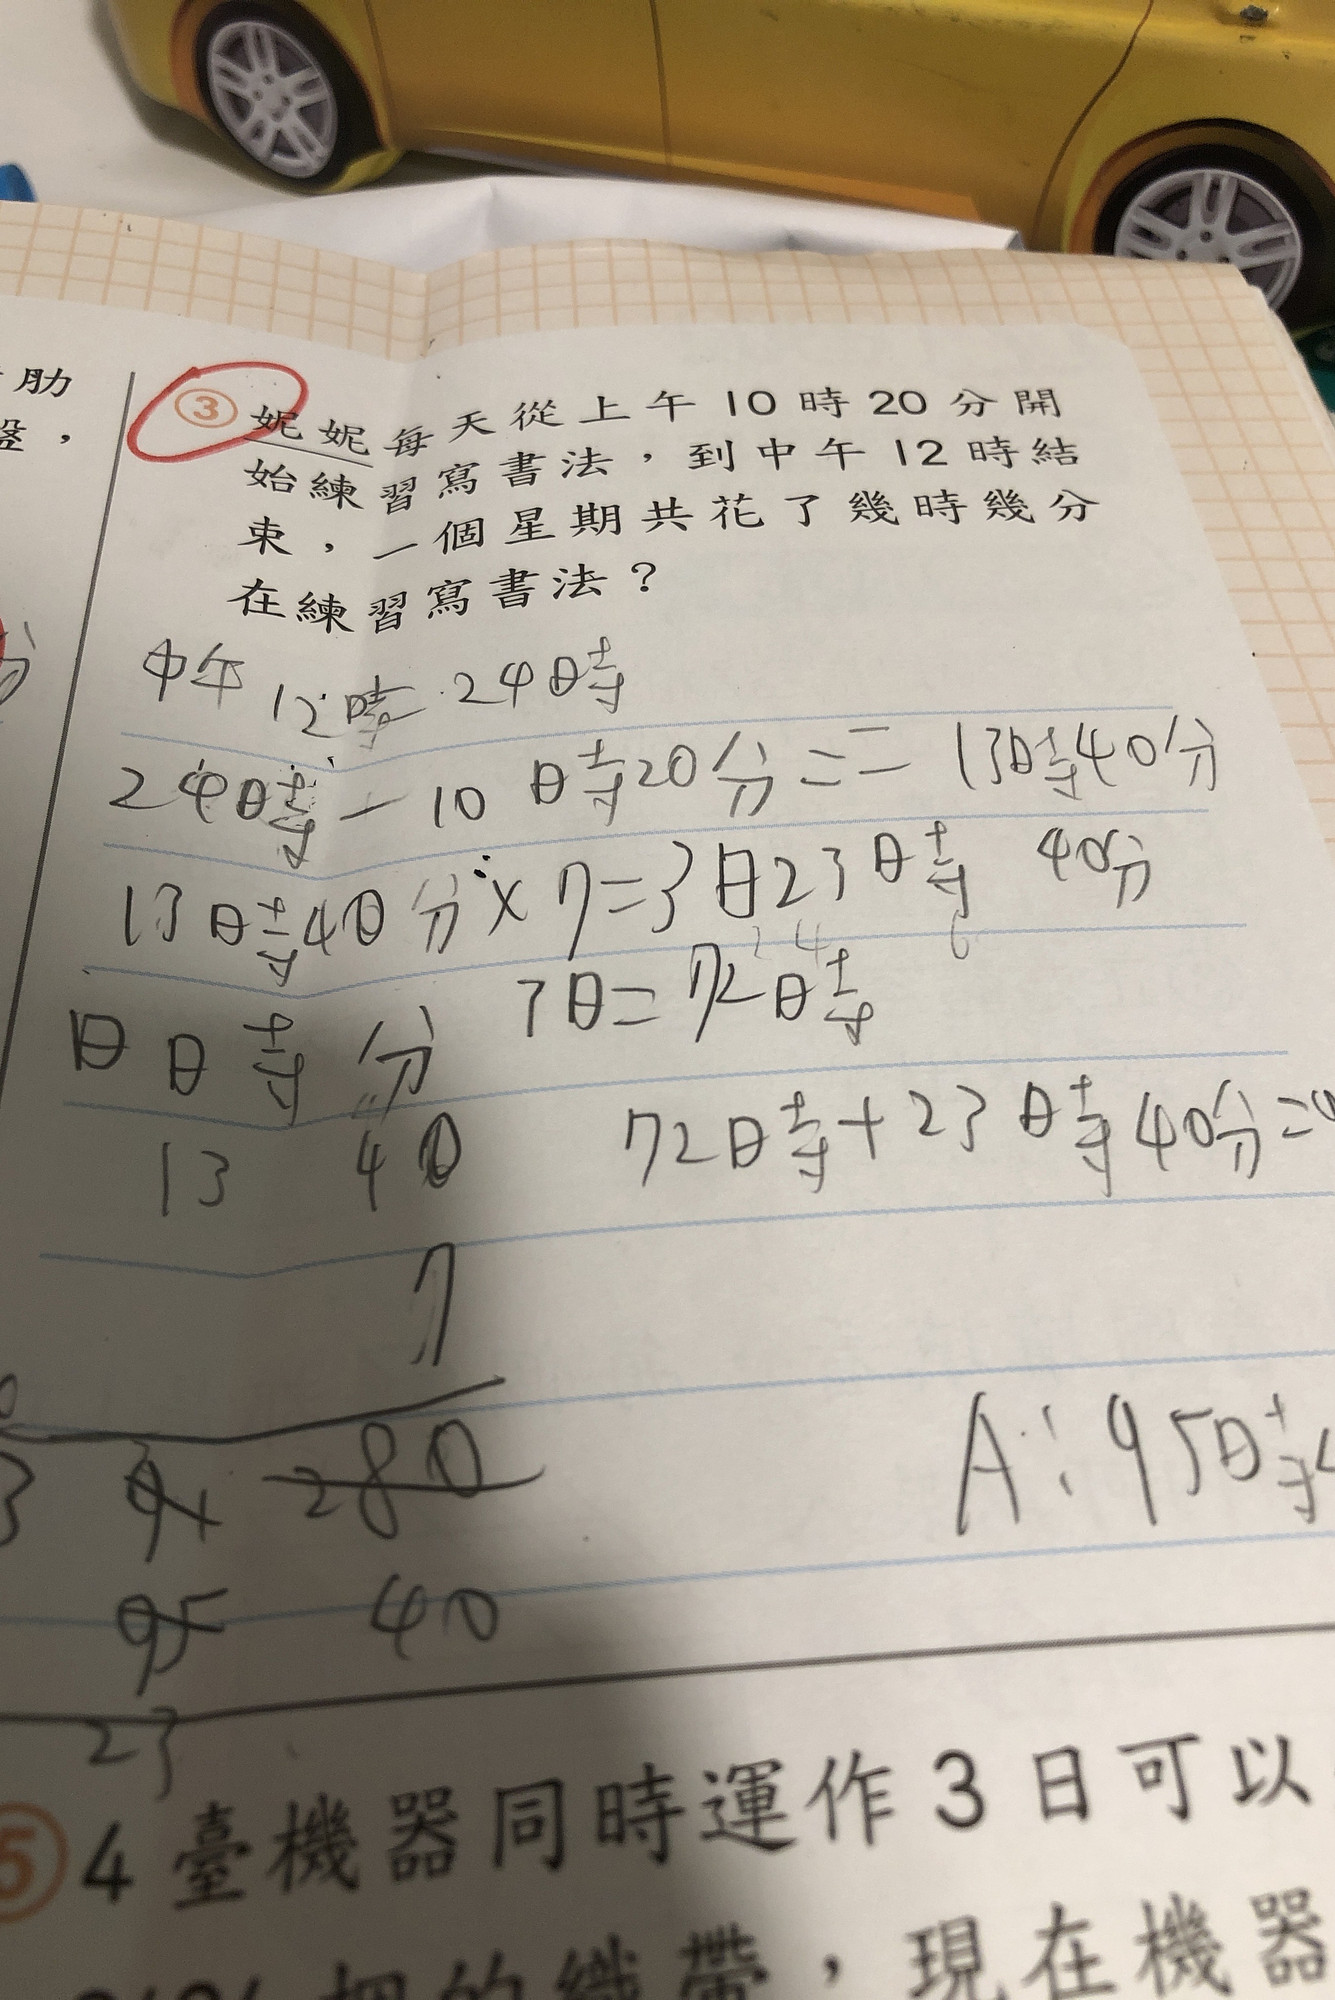 肋
盤，
分
③ 妮妮每天從上午10時20分開
始練習寫書法，到中午12時結
束，一個星期共花了幾時幾分
在練習寫書法？
中午 12時 24時
24時－10時20分＝13時40分
13時40分×7＝3日23時40分
3日＝72時
日 時 分
13 40
72時＋23時40分＝
7
3 91 280
A：95時
95 40
23
⑤ 4臺機器同時運作3日可以
把的織帶，現在機器